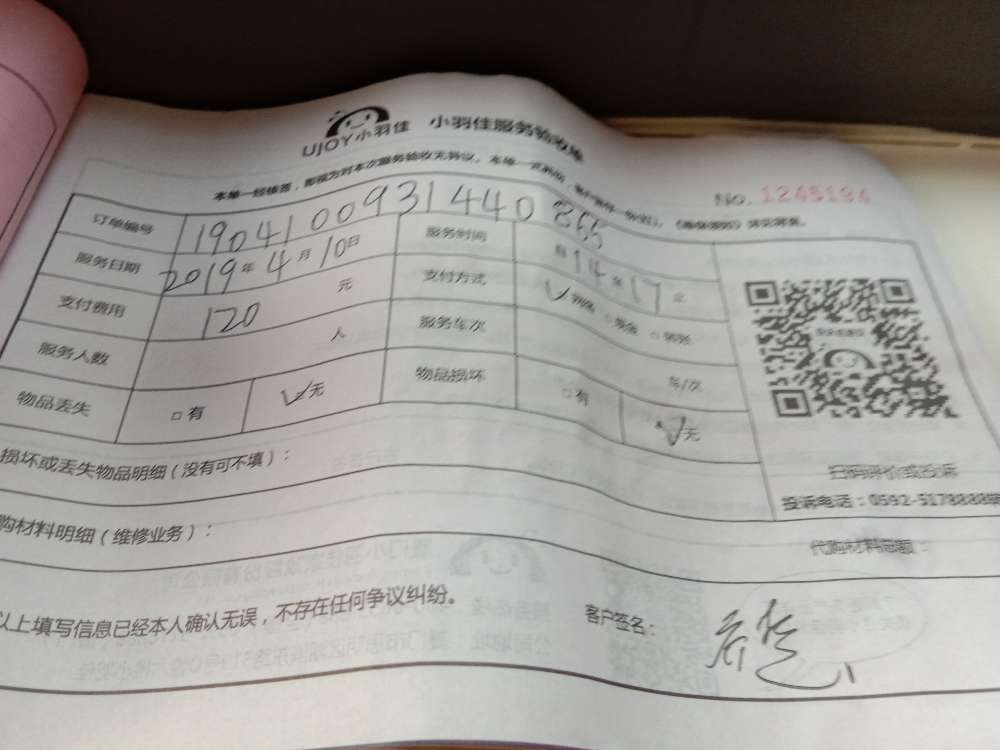 UJOY小羽佳 小羽佳服务验收单
No. 1245194
订单编号 1904100931440365
服务日期 2019年4月10日 服务时间 14 至 17
支付费用 120 元 支付方式
服务人数 人 服务车次 车/次
物品丢失 □有 √无 物品损坏 □有 √无
扫码评价或投诉
投诉电话：0592-5178888
损坏或丢失物品明细（没有可不填）：
购材料明细（维修业务）：
代购材料总额：
以上填写信息已经本人确认无误，不存在任何争议纠纷。
客户签名：